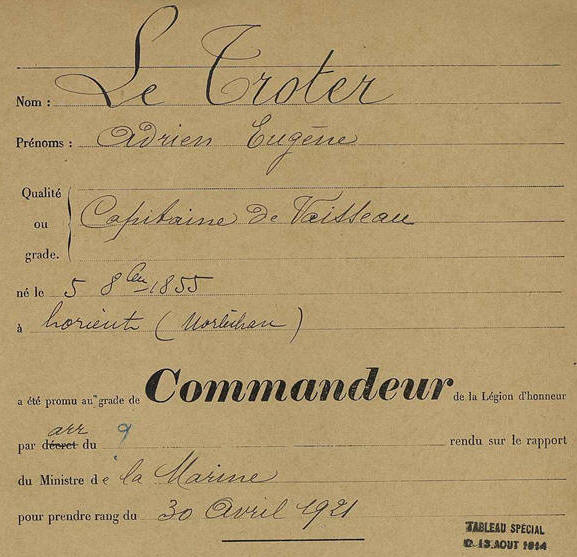 Nom : Le Troter
Prénoms : Adrien Eugène
Qualité
ou
grade.
Capitaine de Vaisseau
né le 5 8bre 1855
à Lorient (Morbihan)
a été promu au grade de Commandeur de la Légion d'honneur
arr
par décret du 9 rendu sur le rapport
du Ministre de la Marine
pour prendre rang du 30 Avril 1921
TABLEAU SPÉCIAL
D. 13 AOUT 1914